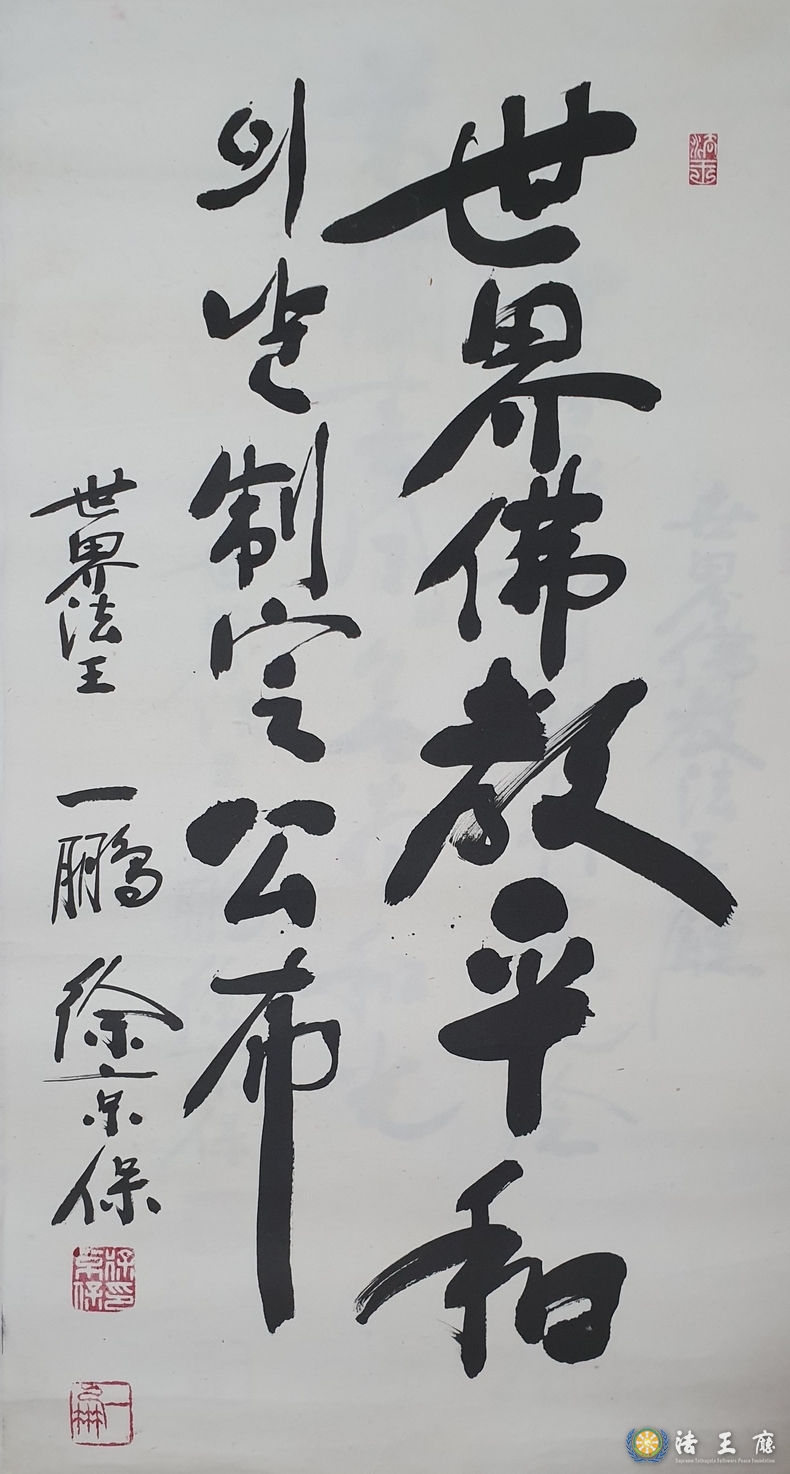 世界佛敎平和
의날制定公布
世界法王 一鵬 徐京保
徐京保印
一鵬
法王廳
Supreme Tathagata Followers Peace Foundation